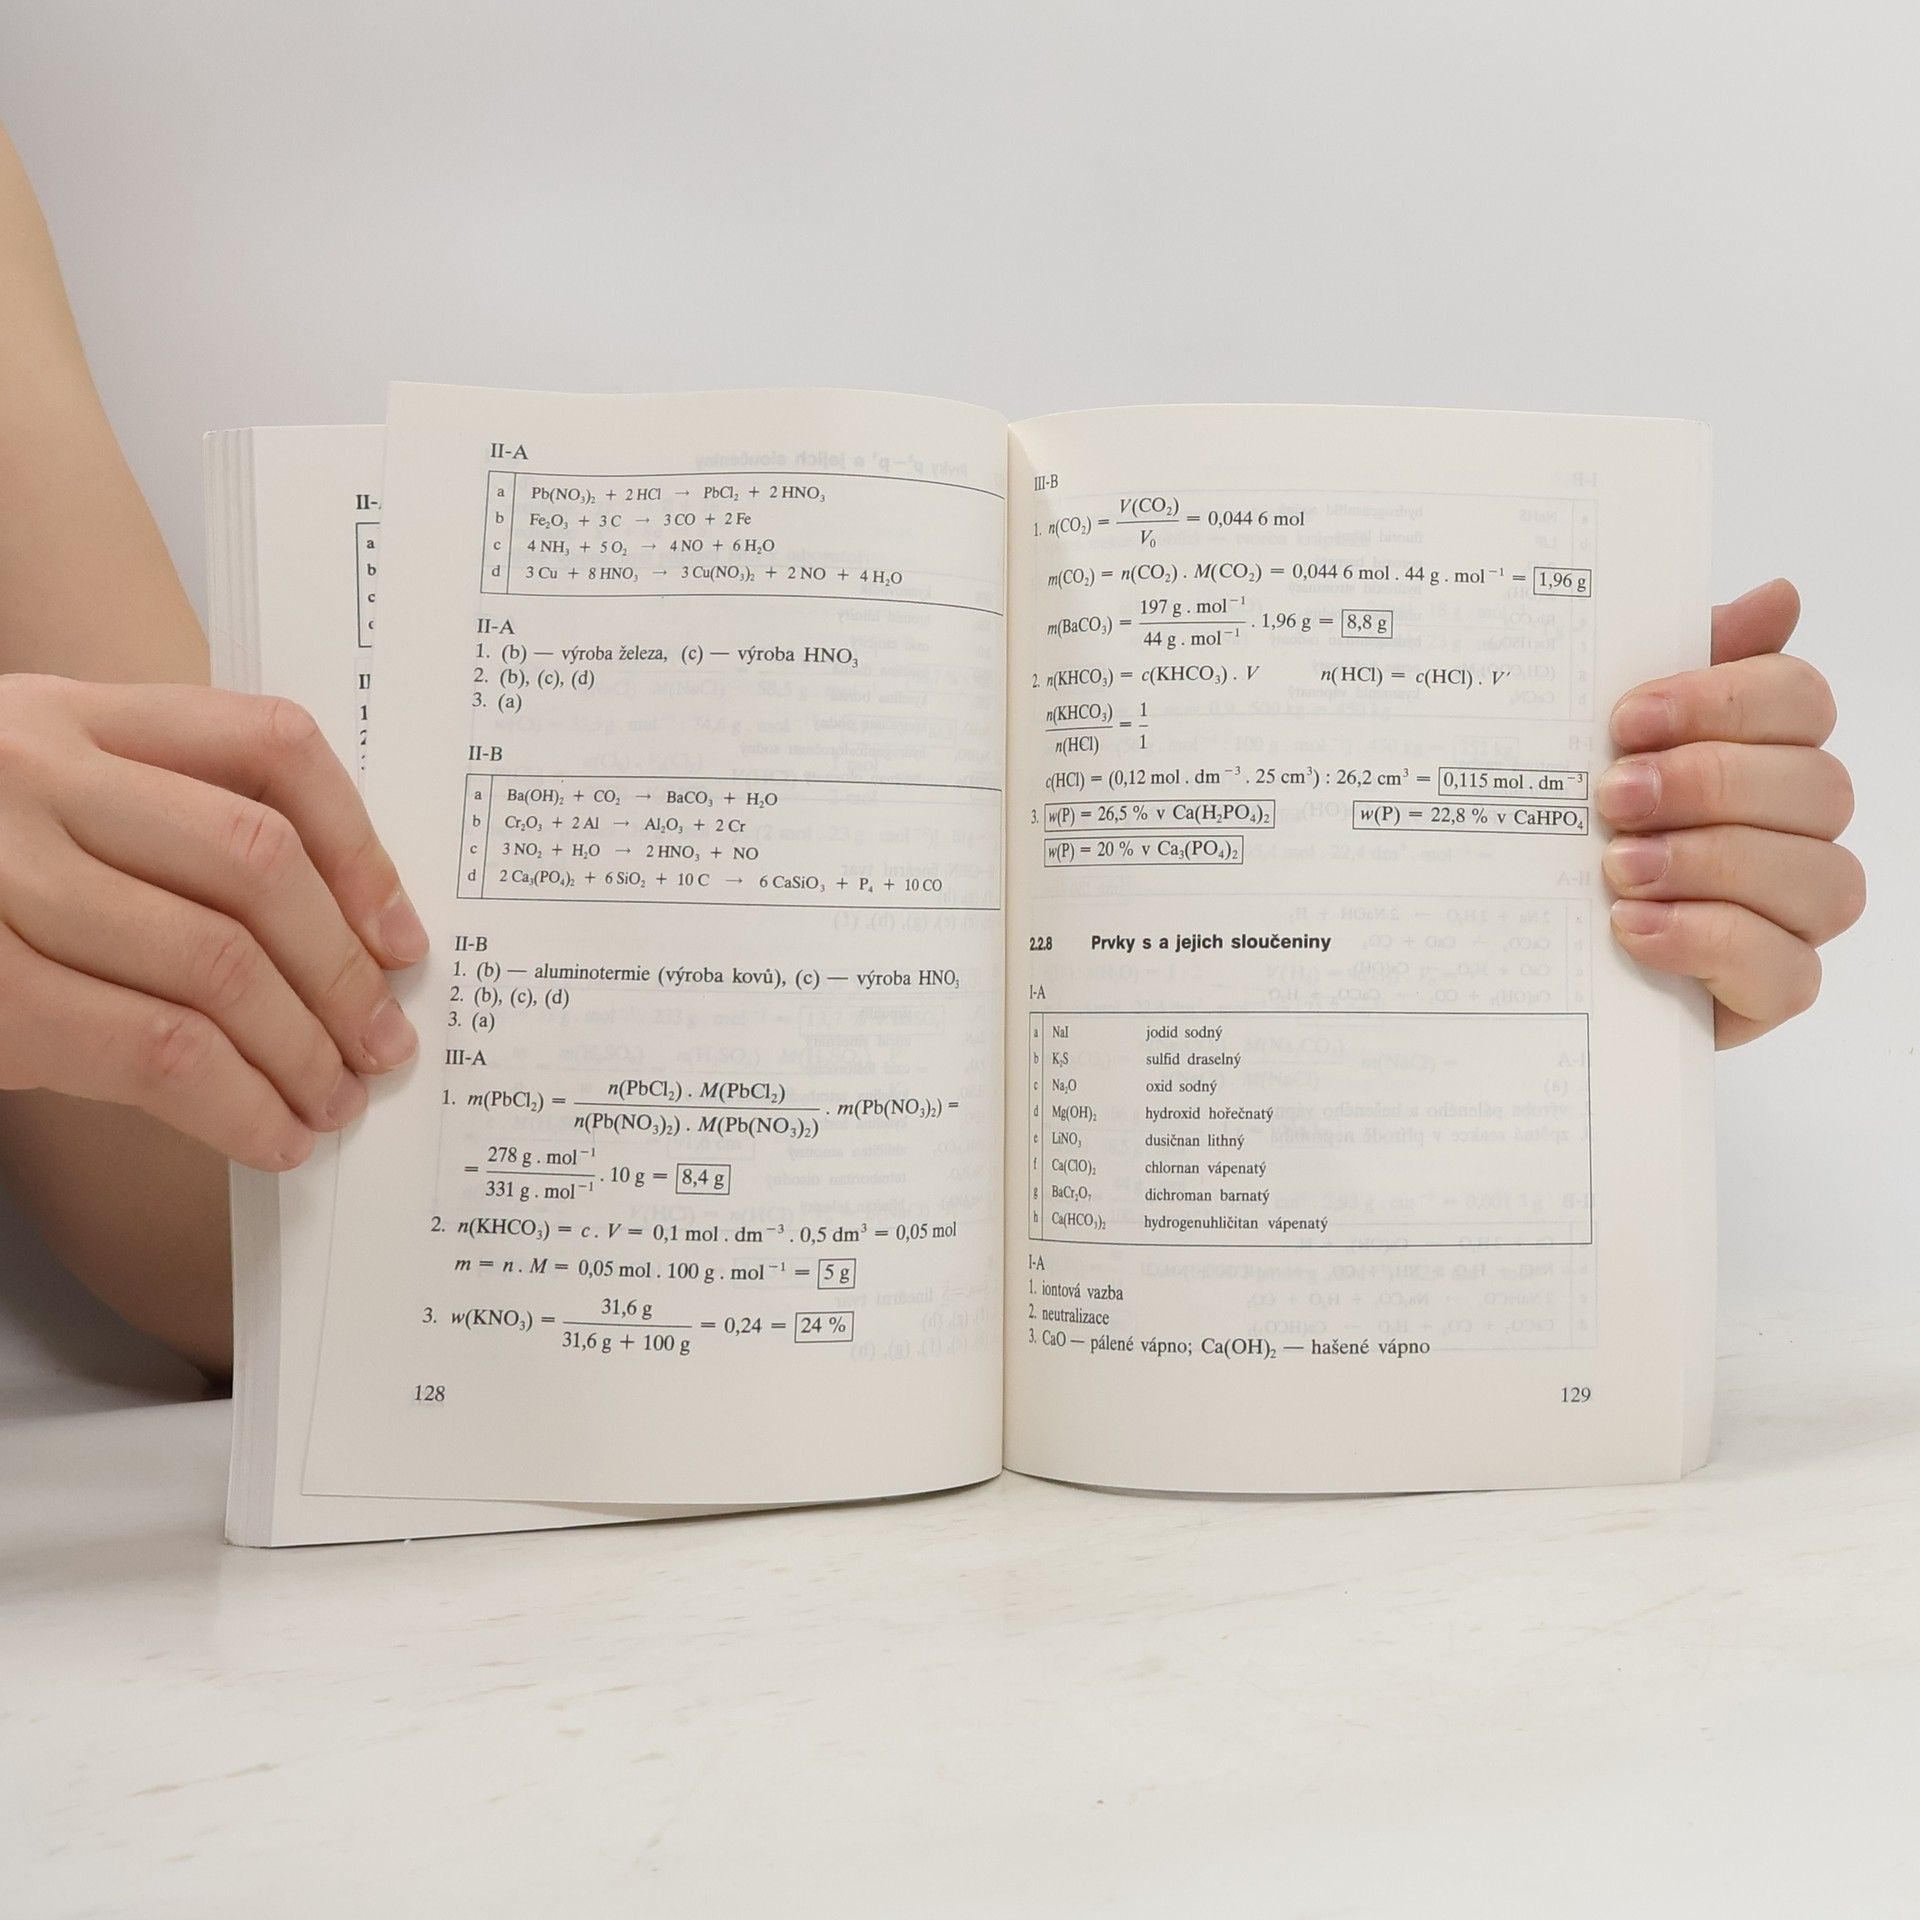 II-
a
b
c
II
1
2
II-A
a Pb(NO₃)₂ + 2 HCl → PbCl₂ + 2 HNO₃
b Fe₂O₃ + 3 C → 3 CO + 2 Fe
c 4 NH₃ + 5 O₂ → 4 NO + 6 H₂O
d 3 Cu + 8 HNO₃ → 3 Cu(NO₃)₂ + 2 NO + 4 H₂O
II-A
1. (b) — výroba železa, (c) — výroba HNO₃
2. (b), (c), (d)
3. (a)
II-B
a Ba(OH)₂ + CO₂ → BaCO₃ + H₂O
b Cr₂O₃ + 2 Al → Al₂O₃ + 2 Cr
c 3 NO₂ + H₂O → 2 HNO₃ + NO
d 2 Ca₃(PO₄)₂ + 6 SiO₂ + 10 C → 6 CaSiO₃ + P₄ + 10 CO
II-B
1. (b) — aluminotermie (výroba kovů), (c) — výroba HNO₃
2. (b), (c), (d)
3. (a)
III-A
1. m(PbCl₂) = n(PbCl₂) . M(PbCl₂) / n(Pb(NO₃)₂) . M(Pb(NO₃)₂) . m(Pb(NO₃)₂) =
= 278 g . mol⁻¹ / 331 g . mol⁻¹ . 10 g = 8,4 g
2. n(KHCO₃) = c . V = 0,1 mol . dm⁻³ . 0,5 dm³ = 0,05 mol
m = n . M = 0,05 mol . 100 g . mol⁻¹ = 5 g
3. w(KNO₃) = 31,6 g / 31,6 g + 100 g = 0,24 = 24 %
128
III-B
1. n(CO₂) = V(CO₂) / V₀ = 0,044 6 mol
m(CO₂) = n(CO₂) . M(CO₂) = 0,044 6 mol . 44 g . mol⁻¹ = 1,96 g
m(BaCO₃) = 197 g . mol⁻¹ / 44 g . mol⁻¹ . 1,96 g = 8,8 g
2. n(KHCO₃) = c(KHCO₃) . V n(HCl) = c(HCl) . V′
n(KHCO₃) / n(HCl) = 1 / 1
c(HCl) = (0,12 mol . dm⁻³ . 25 cm³) : 26,2 cm³ = 0,115 mol . dm⁻³
3. w(P) = 26,5 % v Ca(H₂PO₄)₂ w(P) = 22,8 % v CaHPO₄
w(P) = 20 % v Ca₃(PO₄)₂
2.2.8 Prvky s a jejich sloučeniny
I-A
a NaI jodid sodný
b K₂S sulfid draselný
c Na₂O oxid sodný
d Mg(OH)₂ hydroxid hořečnatý
e LiNO₃ dusičnan lithný
f Ca(ClO)₂ chlornan vápenatý
g BaCr₂O₇ dichroman barnatý
h Ca(HCO₃)₂ hydrogenuhličitan vápenatý
I-A
1. iontová vazba
2. neutralizace
3. CaO — pálené vápno; Ca(OH)₂ — hašené vápno
129